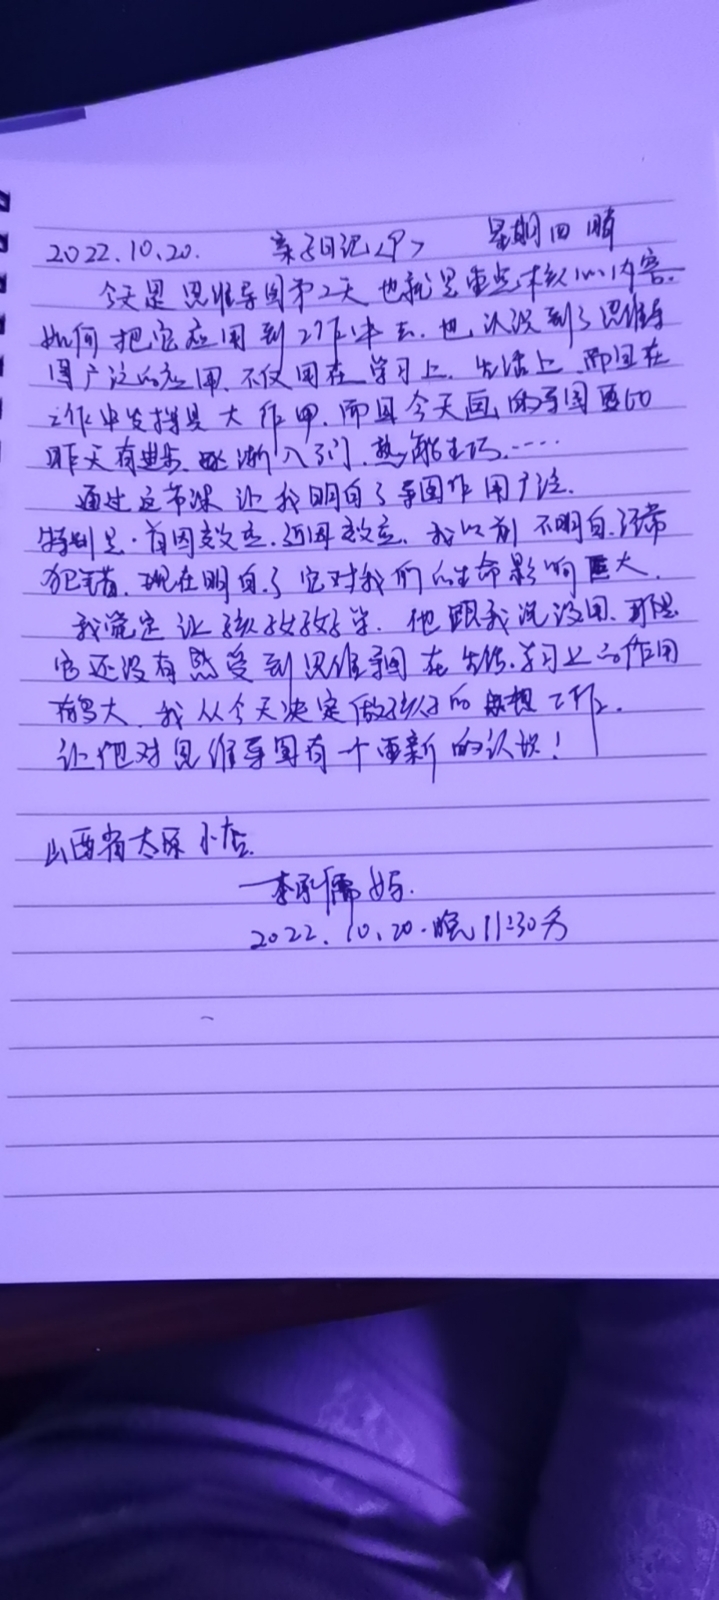 2022.10.20. 亲子日记<9> 星期四 晴
今天是思维导图第2天 也就是重点核心的内容.
如何把它应用到工作中去. 也认识到了思维导
图广泛的应用, 不仅用在学习上. 生活上. 而且在
工作中发挥具大作用. 而且今天画的导图更比
昨天有进步. 逐渐入了门. 熟能生巧.……
通过这节课 让我明白了导图作用广泛.
特别是. 首因效应. 近因效应. 我以前不明白. 经常
犯错. 现在明白了它对我们的生命影响巨大.
我决定让孩子好好学. 他跟我说没用. 那是
它还没有感受到思维导图在生活.学习上的作用
有多大. 我从今天决定做孩子的思想工作.
让他对思维导图有一个重新的认识!
山西省太原小店.
一李承儒妈.
2022.10.20.晚11:30分